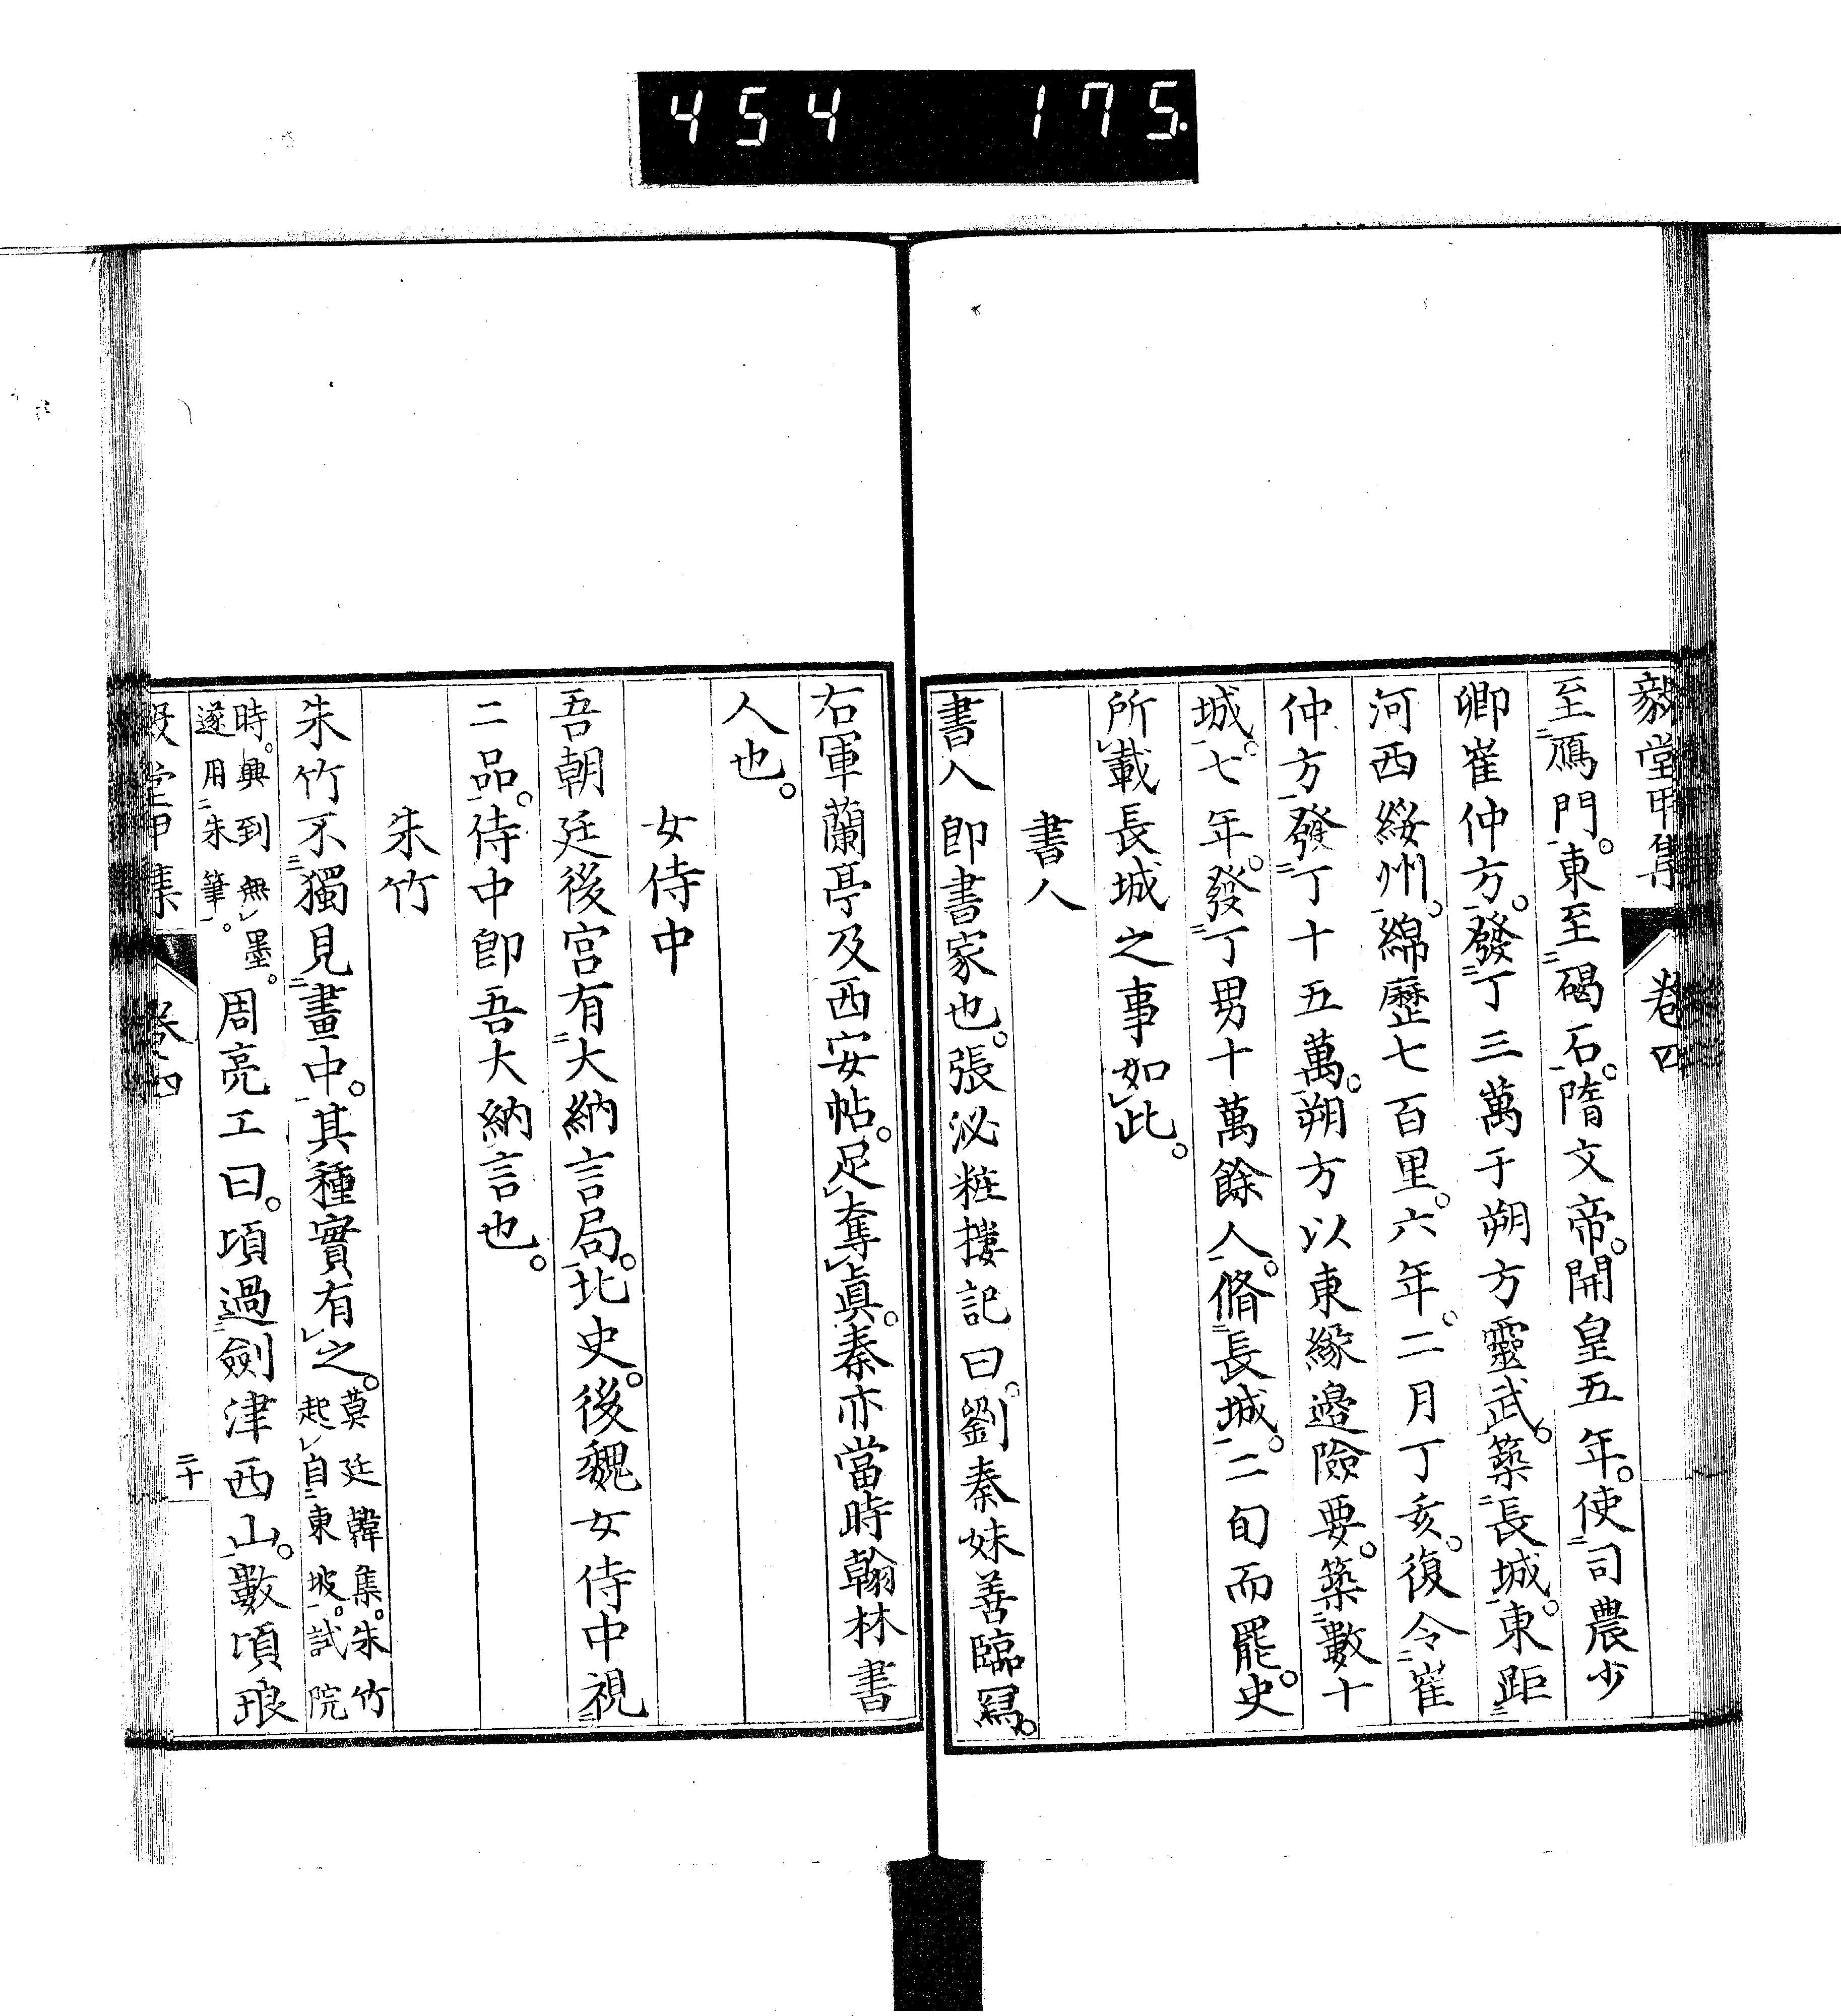 454 175.
毅堂甲集 卷四
至鴈門。東至碣石。隋文帝。開皇五年。使司農少
卿崔仲方。發丁三萬于朔方靈武。築長城。東距
河西綏州。綿歷七百里。六年。二月丁亥。復令崔
仲方發丁十五萬。朔方以東緣邊險要。築數十
城。七年。發丁男十萬餘人。脩長城。二旬而罷。史
所載長城之事如此。
書人
書人即書家也。張泌粧樓記曰。劉秦妹善臨寫。
右軍蘭亭及西安帖。足奪眞。秦亦當時翰林書
人也。
女侍中
吾朝廷後宮有大納言局。北史。後魏女侍中視
二品。侍中即吾大納言也。
朱竹
朱竹不獨見畫中。其種實有之。莫廷韓集。朱竹
起自東坡。試院
時。興到無墨。
遂用朱筆。周亮工曰。頃過劍津西山。數頃琅
毅堂甲集 卷四 二十